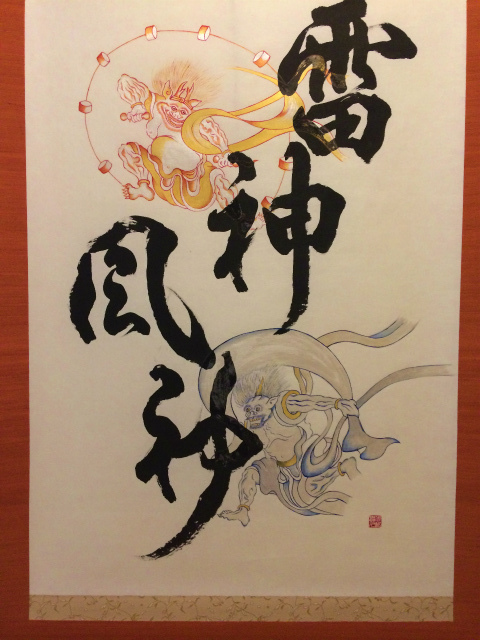 雷神
風神